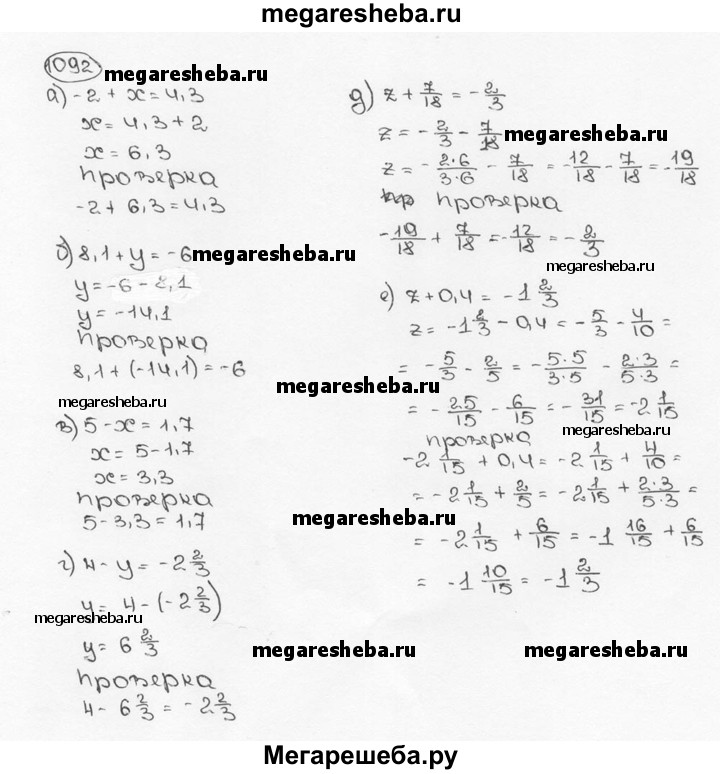 megaresheba.ru
1092
megaresheba.ru
а) -2 + x = 4,3
x = 4,3 + 2
x = 6,3
проверка
-2 + 6,3 = 4,3
б) 8,1 + y = -6
megaresheba.ru
y = -6 - 8,1
y = -14,1
проверка
8,1 + (-14,1) = -6
megaresheba.ru
в) 5 - x = 1,7
x = 5 - 1,7
x = 3,3
проверка
5 - 3,3 = 1,7
г) 4 - y = -2 2/3
y = 4 - (-2 2/3)
megaresheba.ru
y = 6 2/3
проверка
4 - 6 2/3 = -2 2/3
д) z + 7/18 = -2/3
z = -2/3 - 7/18
megaresheba.ru
z = -2·6/3·6 - 7/18 = -12/18 - 7/18 = -19/18
проверка
-19/18 + 7/18 = -12/18 = -2/3
megaresheba.ru
е) z + 0,4 = -1 2/3
z = -1 2/3 - 0,4 = -5/3 - 4/10 =
= -5/3 - 2/5 = -5·5/3·5 - 2·3/5·3 =
megaresheba.ru
= -25/15 - 6/15 = -31/15 = -2 1/15
megaresheba.ru
проверка
-2 1/15 + 0,4 = -2 1/15 + 4/10 =
= -2 1/15 + 2/5 = -2 1/15 + 2·3/5·3 =
megaresheba.ru
= -2 1/15 + 6/15 = -1 16/15 + 6/15
= -1 10/15 = -1 2/3
megaresheba.ru
megaresheba.ru
Мегарешеба.ру